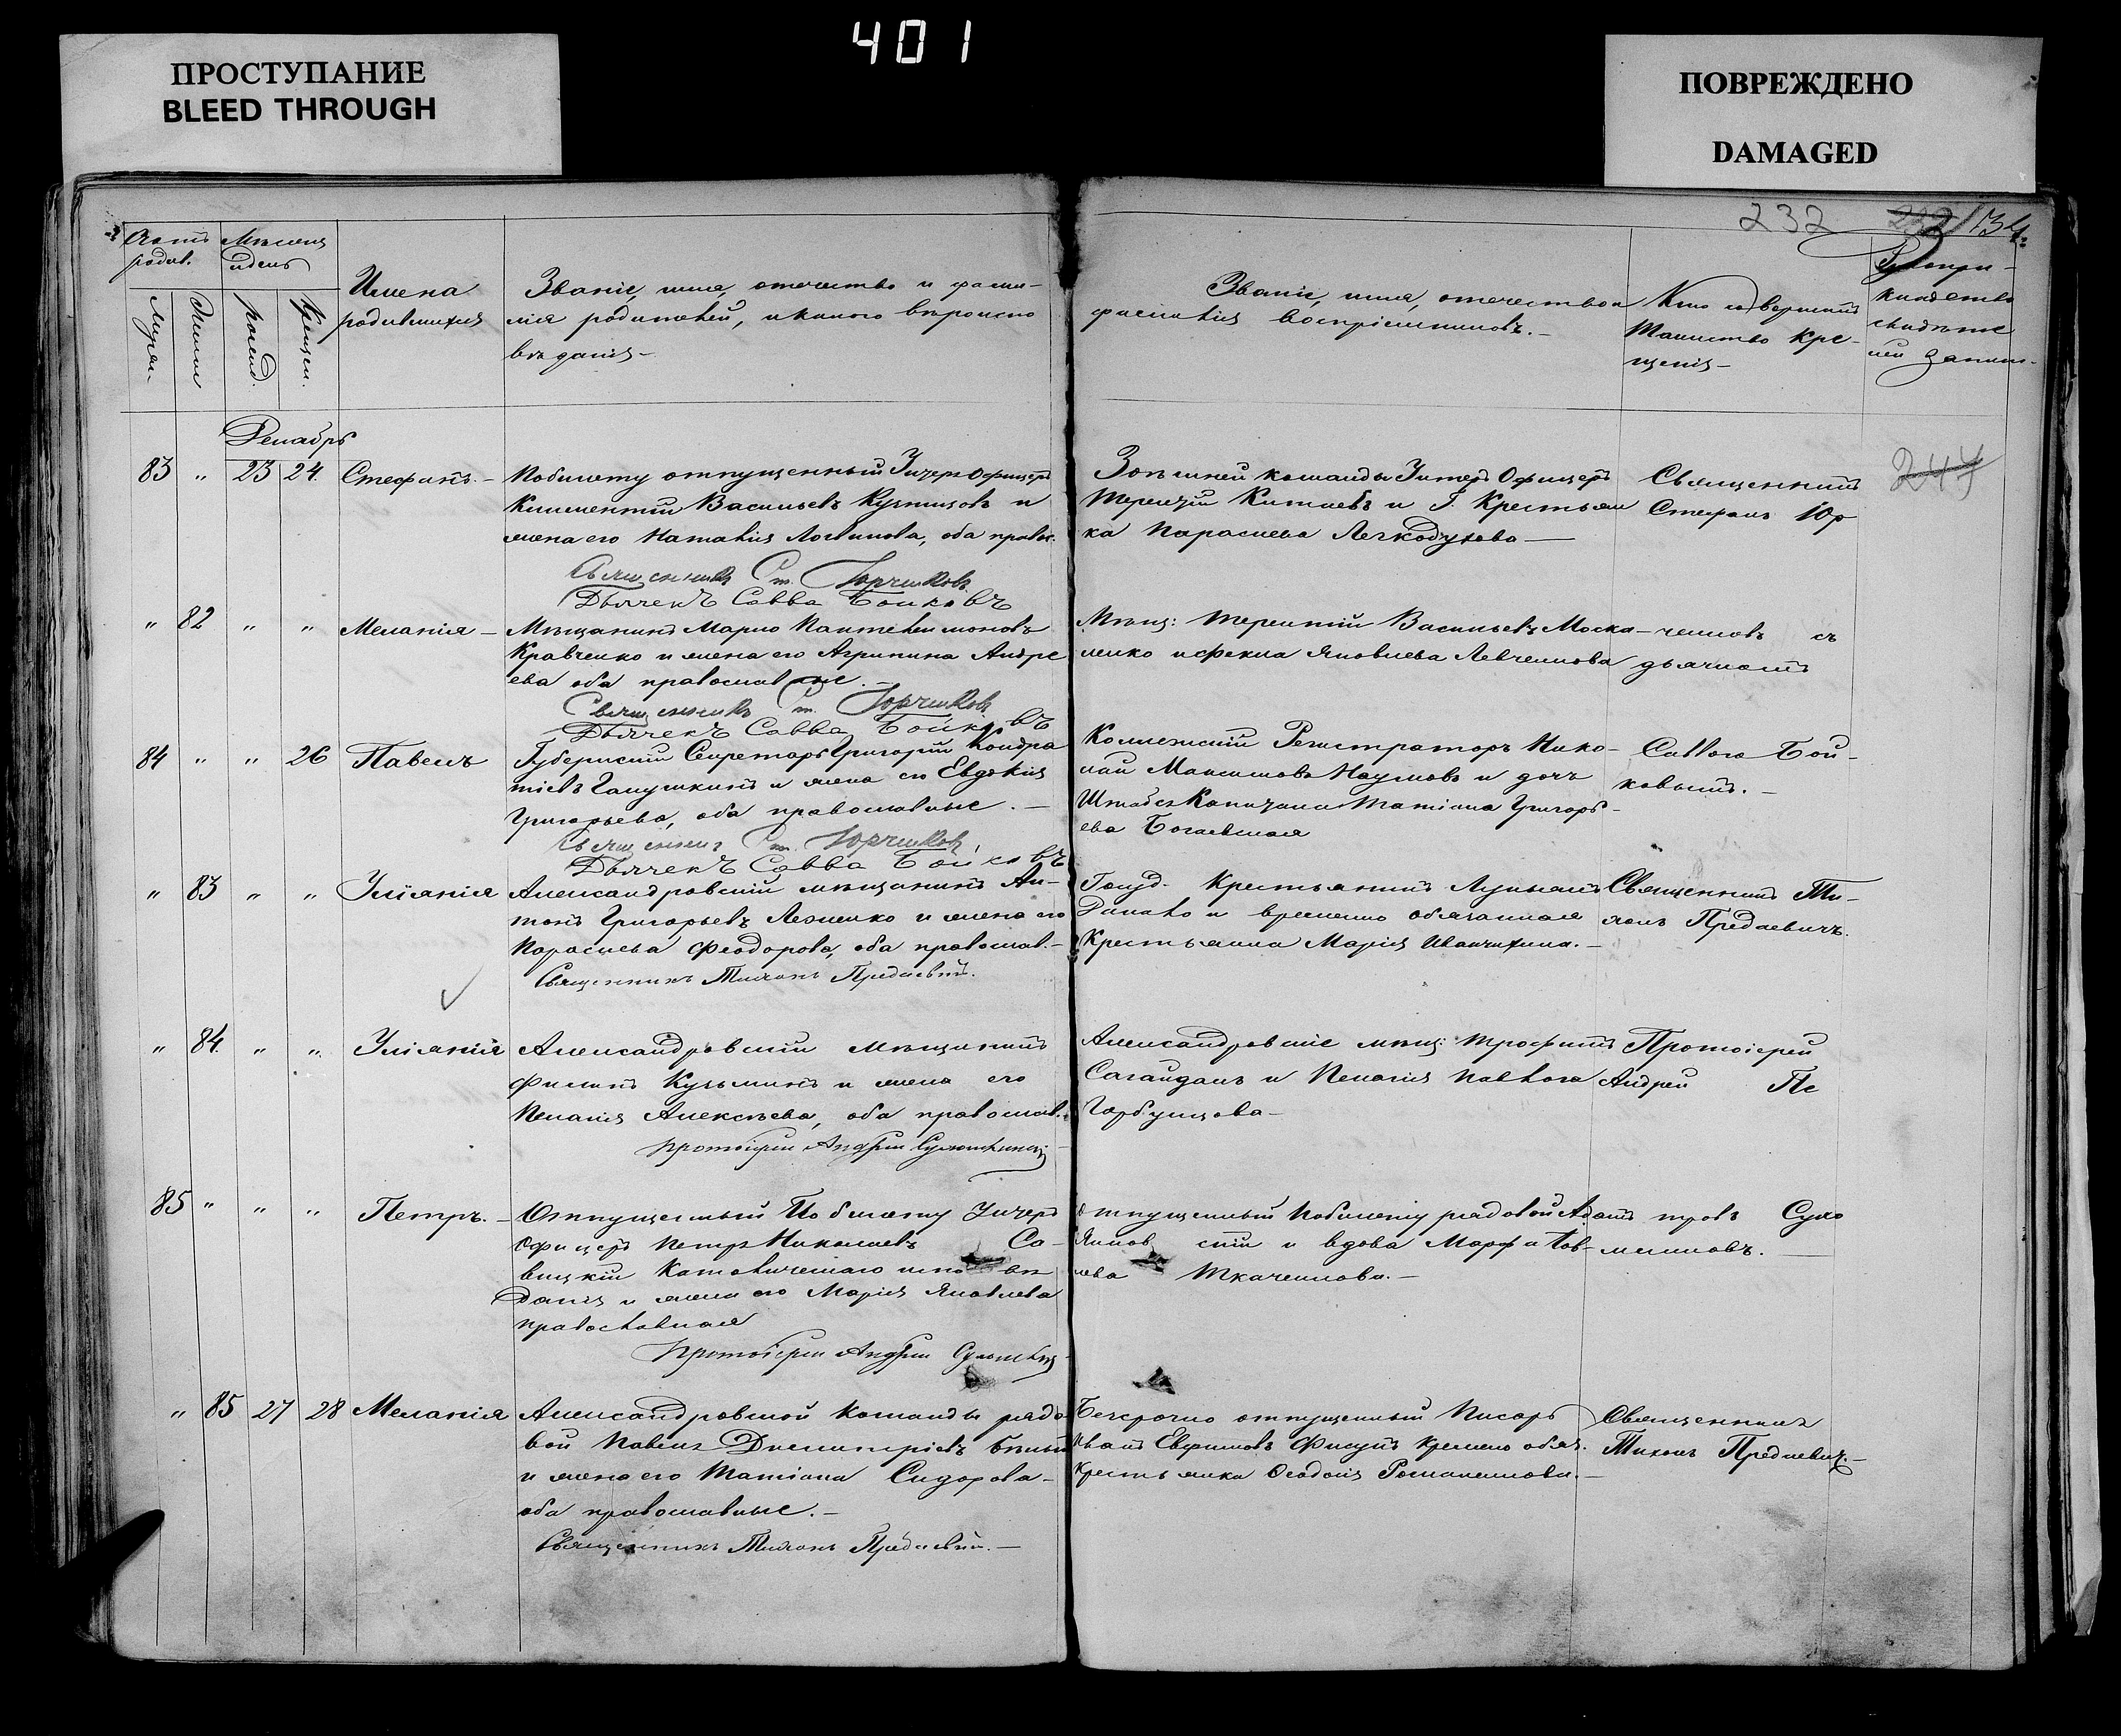 401
ПРОСТУПАНИЕ
BLEED THROUGH
ПОВРЕЖДЕНО
DAMAGED
232 134
Счетъ родив. Мѣсяцъ и день
Имена родившихся
Званіе, имя, отчество и фами-
лія родителей, и какого вѣроиспо
вѣданія –
Званіе, имя, отечество и
фамилія воспріемниковъ. –
Кто совершилъ
Таинство кре-
щенія –
Рукопри-
кладство
свидѣте
лей
Декабрь
83 " 23 24. Стефанъ. –
Побилету отпущенный Унтеръ Офицеръ
Климентій Васильевъ Кузнецовъ и
жена его Наталія Логвинова, оба правос.
Священникъ Ст. Юрченковъ
Дьячекъ Савва Бойковъ
Здѣшней команды Унтеръ Офицеръ
Терентій Китаевъ и Г. Крестьян
ка Параскева Легкодухова —
Священникъ
Стефанъ Юр
244
" 82 " " Меланія –
Мѣщанинъ Марко Пантелеимоновъ
Кравченко и жена его Агрипина Андре
ева оба православные. –
Священникъ Ст. Юрченковъ
Дьячекъ Савва Бойковъ
Мѣщ: Терентій Васильевъ Моска-
ленко и Фекла Яковлева Левченкова
ченковъ съ
дьячкомъ
84 " " 26 Павелъ
Губернскій Секретарь Григорій Кондра
тіевъ Галушкинъ и жена его Евдокія
Григорьева, оба православные. –
Священникъ Ст. Юрченковъ
Дьячекъ Савва Бойковъ
Коллежскій Регистраторъ Нико-
лай Максимовъ Наумовъ и дочь
Штабсъ Капитана Татіана Григорь-
ева Богаевская
Саввою Бой-
ковымъ. –
" 83 " " Уліанія
Александровскій мѣщанинъ Ан-
тонъ Григорьевъ Лезненко и жена его
Параскева Феодорова, оба православ. –
Священникъ Тихонъ Предаевичъ.
Госуд. Крестьянинъ Лукьянъ
и временно обязанная
Крестьянка Марія Иванчихина. –
Священникъ Ти-
хонъ Предаевичъ.
" 84. " " Уліянія
Александровскій мѣщанинъ
Филипъ Кузьминъ и жена его
Пелагія Алексѣева, оба православ.
Протоіерей Андрей
Александровскіе мѣщ: Трофимъ
Сагайдакъ и Пелагія Павлова
Горбунцова –
Протоіерей
Андрей Пе
85 " " " Петръ. –
Отпущенный По билету Унтеръ
Офицеръ Петръ Николаевъ Са-
вицкій Католическаго испо вѣ
данія и жена его Марія Яковлева
православная
Протоіерей Андрей
Отпущенный по билету рядовой Адамъ
скій и вдова Марфа Іов-
лева Ткаченкова. –
тровъ Сухо
млиновъ. —
" 85 27 28 Меланія
Александровской Команды рядо
вой Павелъ Димитріевъ Бѣлый
и жена его Татіана Сидорова –
оба православные. –
Священникъ Тихонъ Предаевич. –
Безсрочно отпущенный Писарь
Иванъ Евфимовъ и времено обяз.
Крестьянка Феодосія Романенкова. –
Священникъ
Тихонъ Предаевич. –